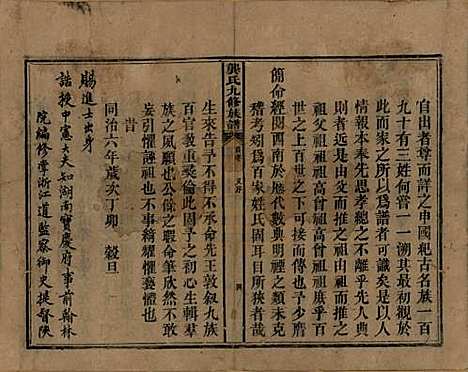 自出者尊而詳之申國紀古名族一百
九十有三姓何嘗一一溯其最初觀於
此而家之所以為譜者可識矣是以人
情報本奉先思孝總之不離乎先人典
則者近是由父而推之祖由祖而推之
祖父祖祖高曾高曾祖祖庶乎百
世之上百世之下可接而傳也予少膺
簡命經閩西南於歷代數典明禋之類未克
稽考矧為百家姓氏固耳目所狹者哉
龔氏九修族譜
生來告予不得不承命先王敦叙九族
百官克典樂倫此固予之初心生輯羣
族之夙願也公餘之暇命筆欣然不敢
妄引懼誣祖也不事綺耀懼褻體也
昔
同治六年歲次丁卯 穀旦
賜進士出身
誥授中憲大夫知湖南寶慶府事前翰林
院編修掌浙江道監察御史提督陝